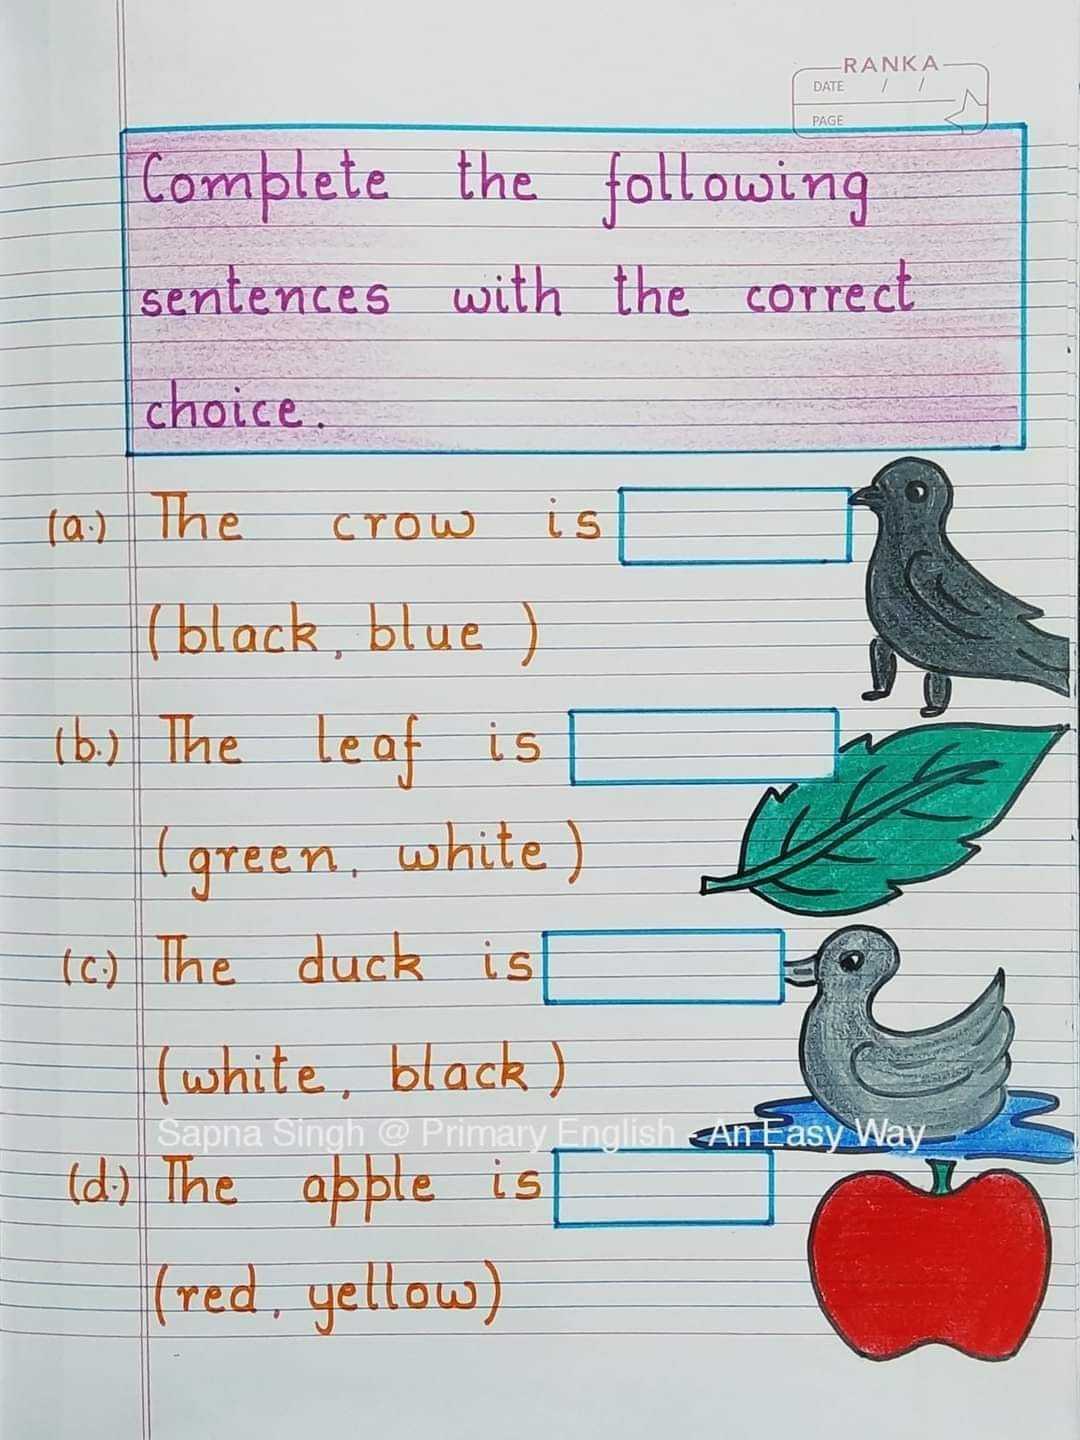 RANKA
DATE / /
PAGE
Complete the following
sentences with the correct
choice.
(a.) The crow is
(black, blue )
(b.) The leaf is
(green, white)
(c.) The duck is
(white, black)
Sapna Singh @ Primary English - An Easy Way
(d.) The apple is
(red, yellow)